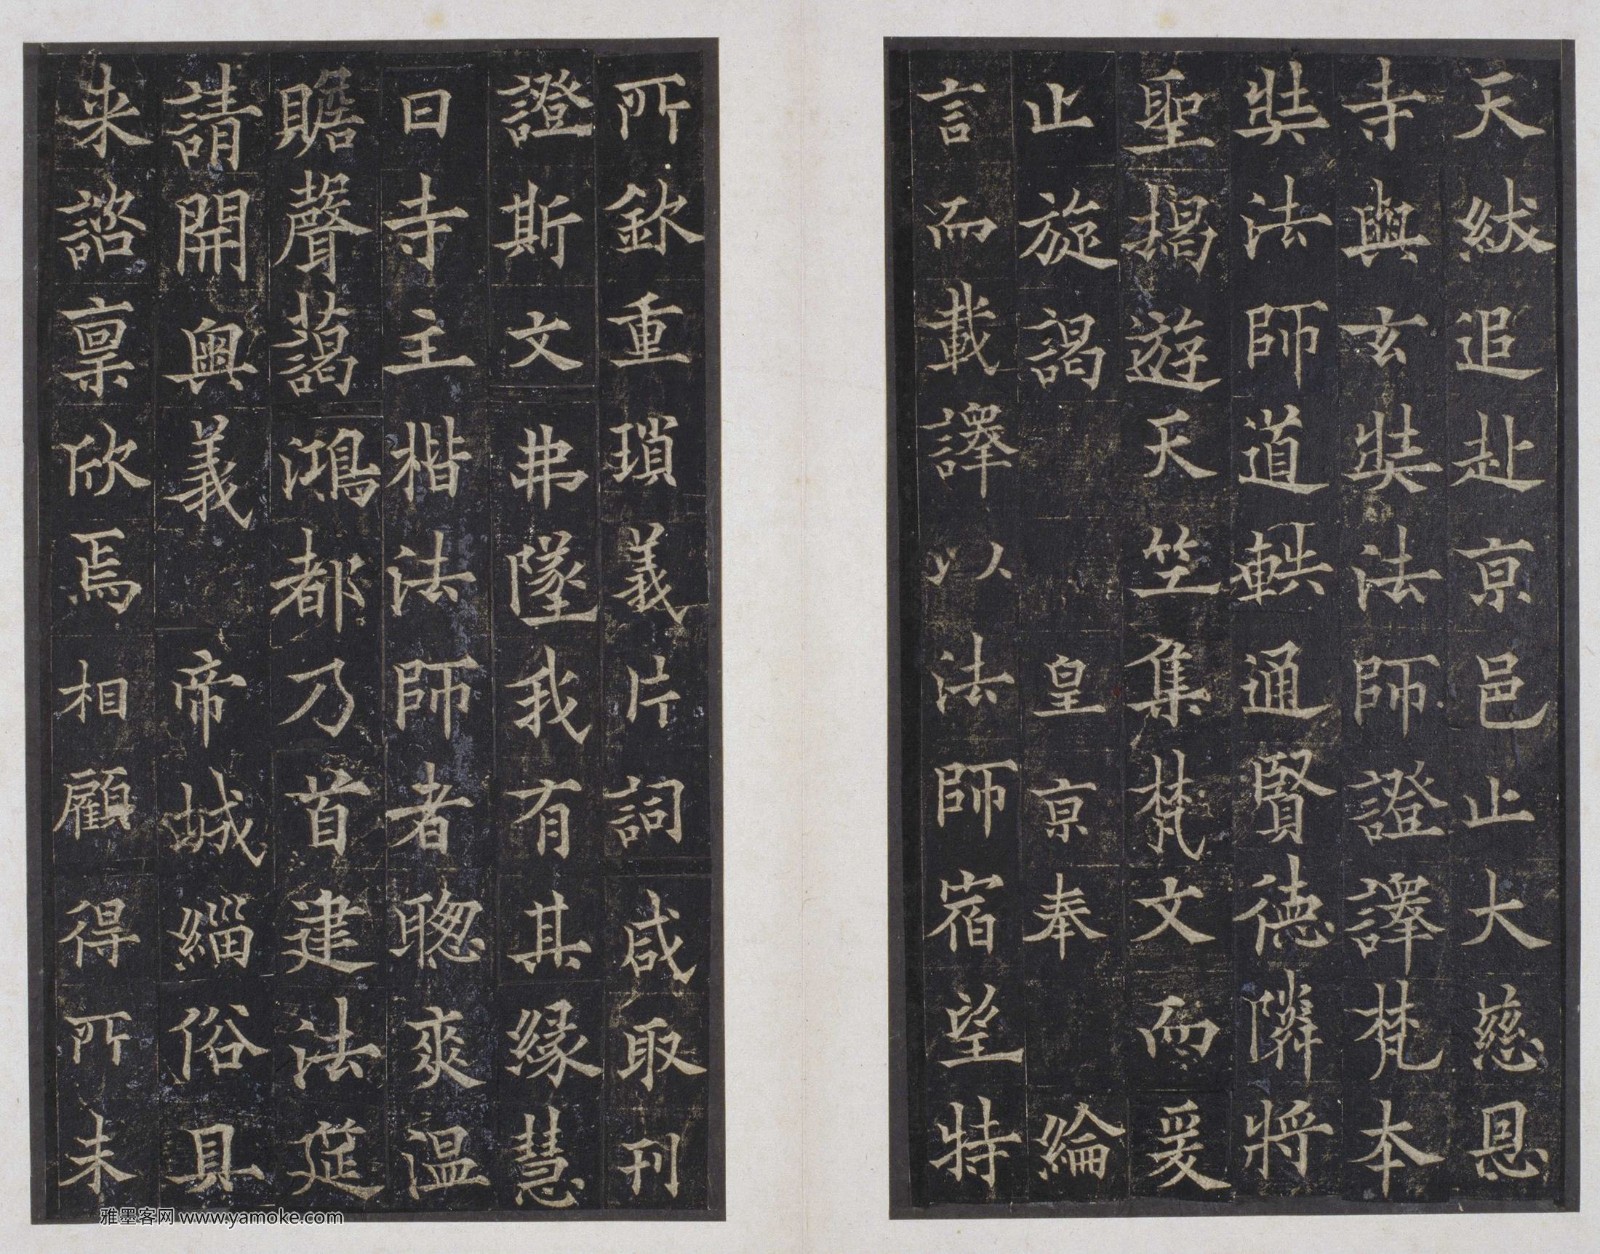 天紱追赴京邑止大慈恩
寺與玄奘法師證譯梵本
奘法師道軼通賢德隣將
聖揭遊天竺集梵文而爰
止旋謁皇京奉綸
言而載譯以法師宿望特
所欽重瑣義片詞咸取刊
證斯文弗墜我有其緣慧
日寺主楷法師者聰爽溫
贍聲藹鴻都乃首建法筵
請開奥義帝城緇俗具
来諮稟欣焉相顧得所未
雅墨客网 www.yamoke.com